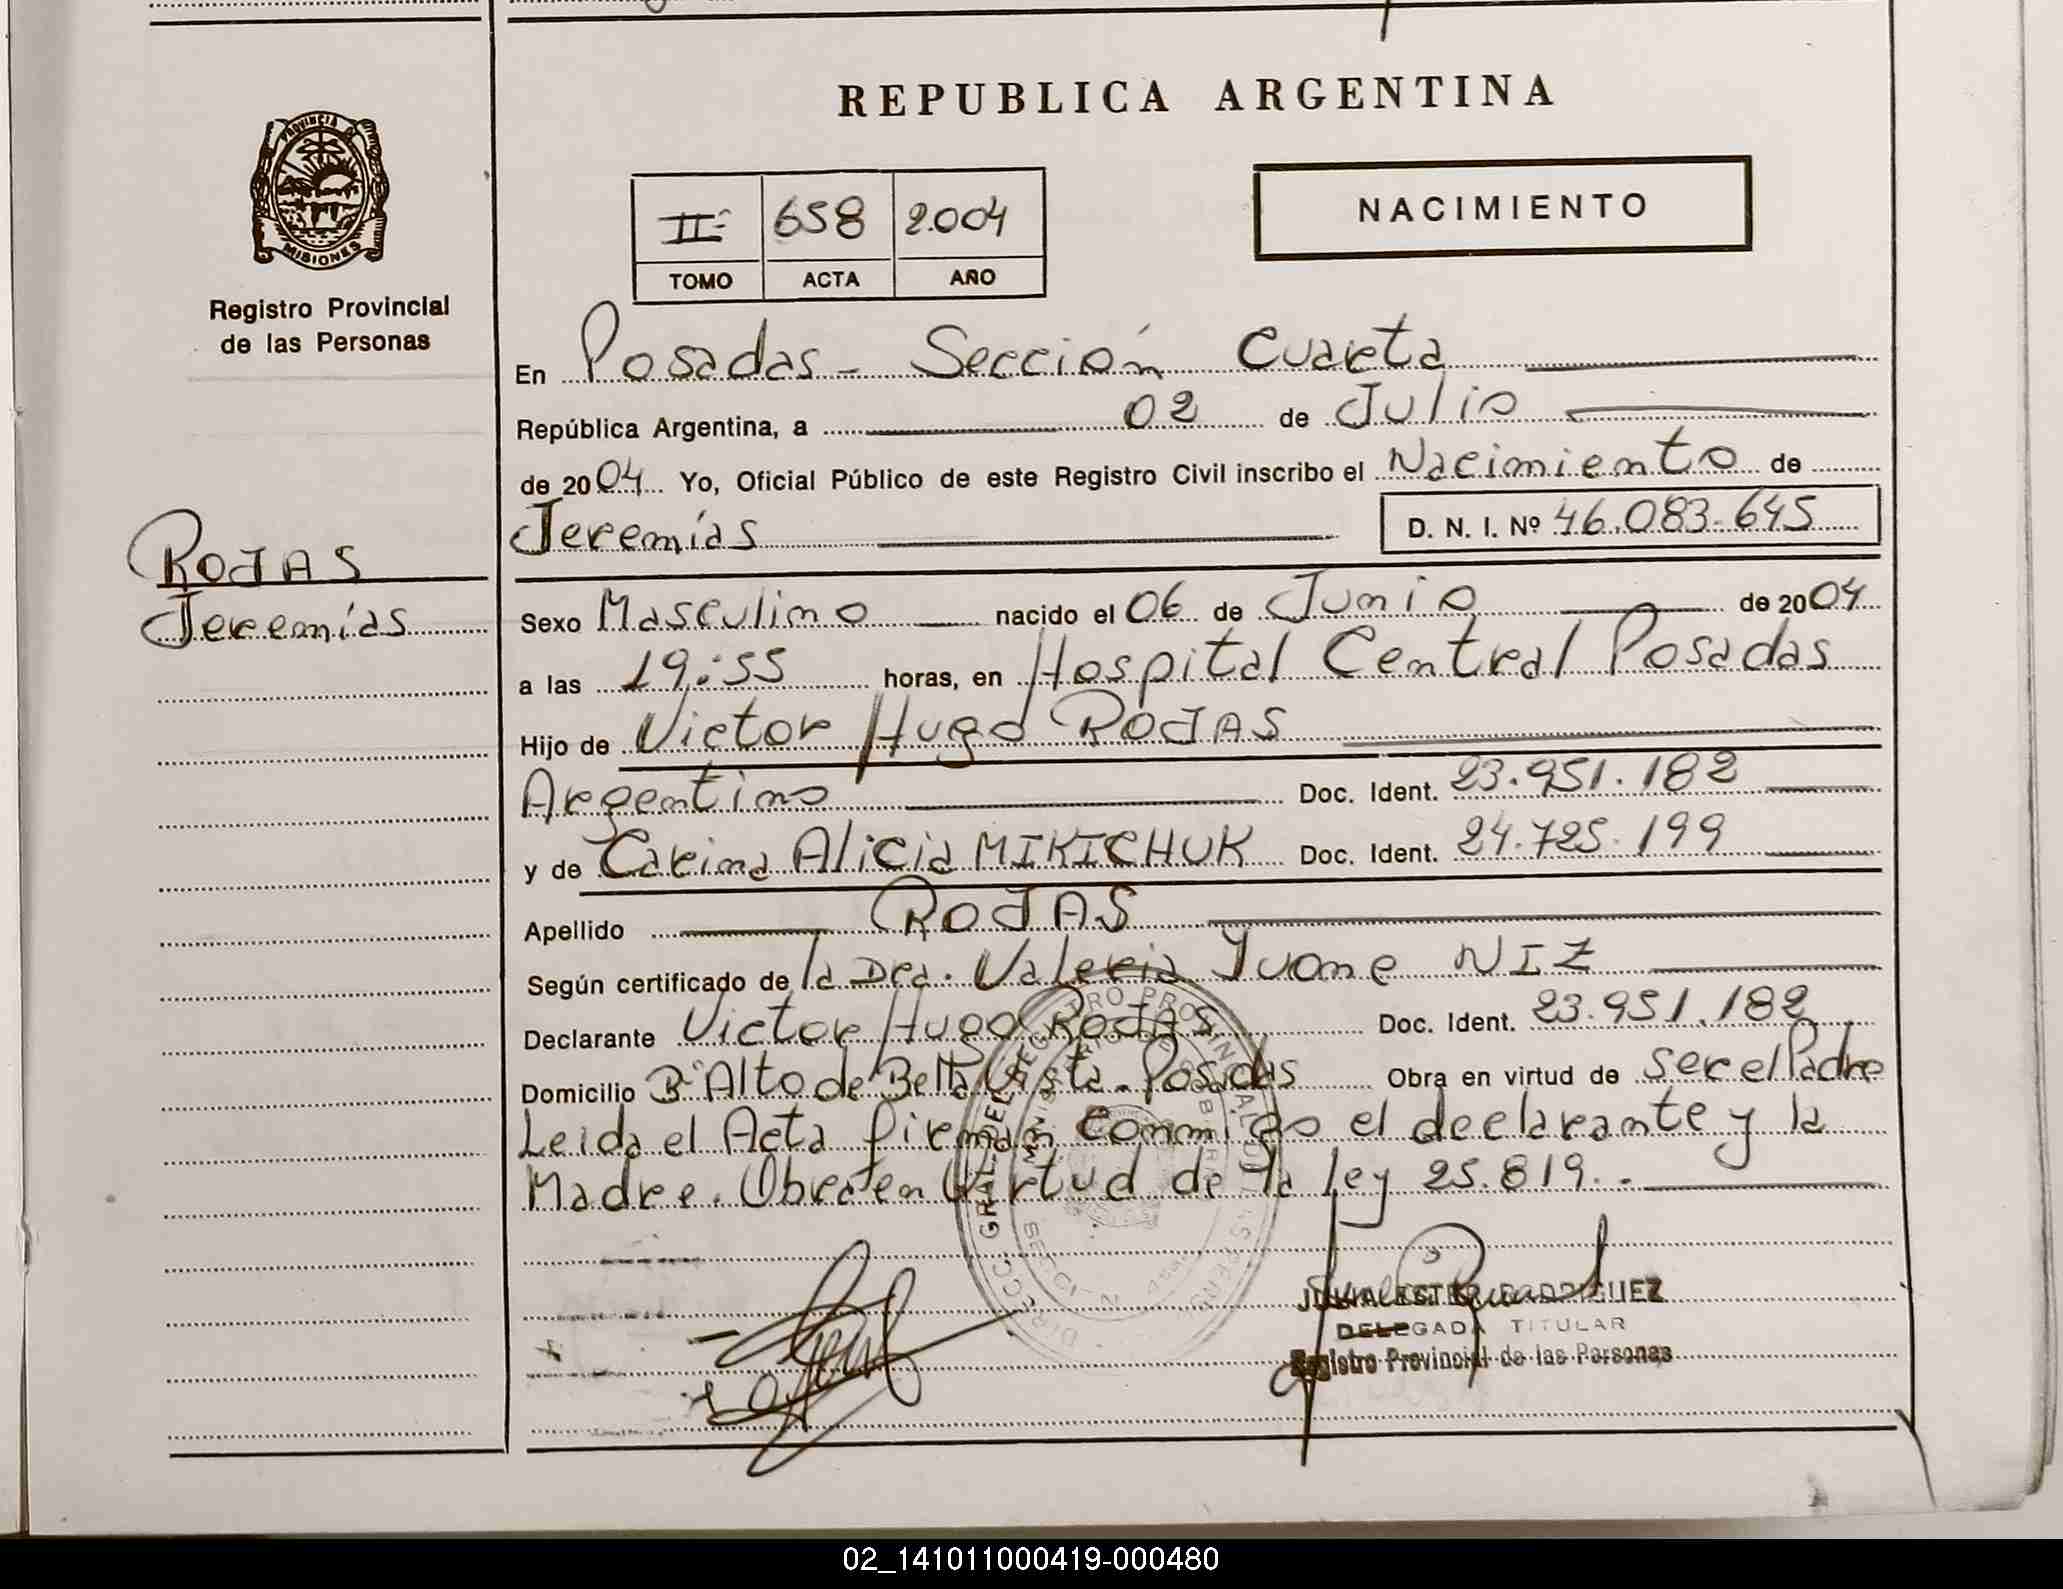 REPUBLICA ARGENTINA
PROVINCIA DE
MISIONES
Registro Provincial
de las Personas
IIº 658 2.004
TOMO ACTA AÑO
NACIMIENTO
En Posadas - Sección Cuarta
República Argentina, a 02 de Julio
de 2004 Yo, Oficial Público de este Registro Civil inscribo el Nacimiento de
Jeremías D. N. I. Nº 46.083.645
ROJAS
Jeremías
Sexo Masculino nacido el 06 de Junio de 2004
a las 19:55 horas, en Hospital Central Posadas
Hijo de Victor Hugo ROJAS
Argentino Doc. Ident. 23.951.182
y de Carina Alicia MIKICHUK Doc. Ident. 24.725.199
Apellido ROJAS
Según certificado de la Dra. Valeria Ivone NIZ
Declarante Victor Hugo ROJAS Doc. Ident. 23.951.182
Domicilio Bº Alto de Bella Vista - Posadas Obra en virtud de ser el Padre
Leida el Acta firman conmigo el declarante y la
Madre. Obra en Virtud de la ley 25.819..
DIRECC. GRAL. DEL REGISTRO PROVINCIAL DE LAS PERSONAS
ESTER RODRIGUEZ
DELEGADA TITULAR
Registro Provincial de las Personas
02_141011000419-000480